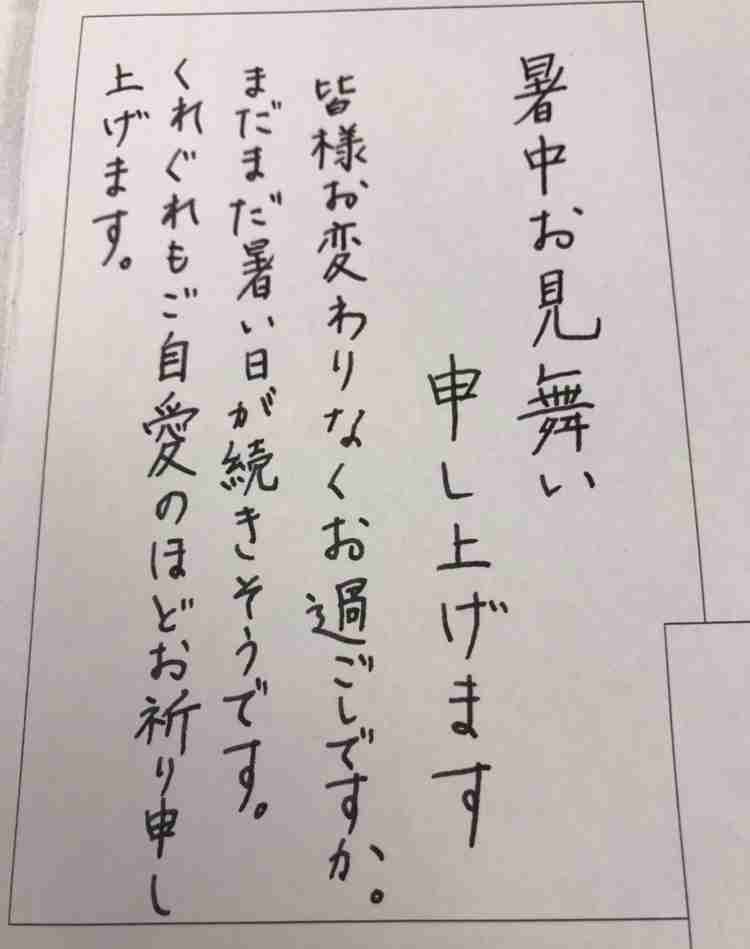 暑中お見舞い
申し上げます
皆様お変わりなくお過ごしですか。
まだまだ暑い日が続きそうです。
くれぐれもご自愛のほどお祈り申し
上げます。